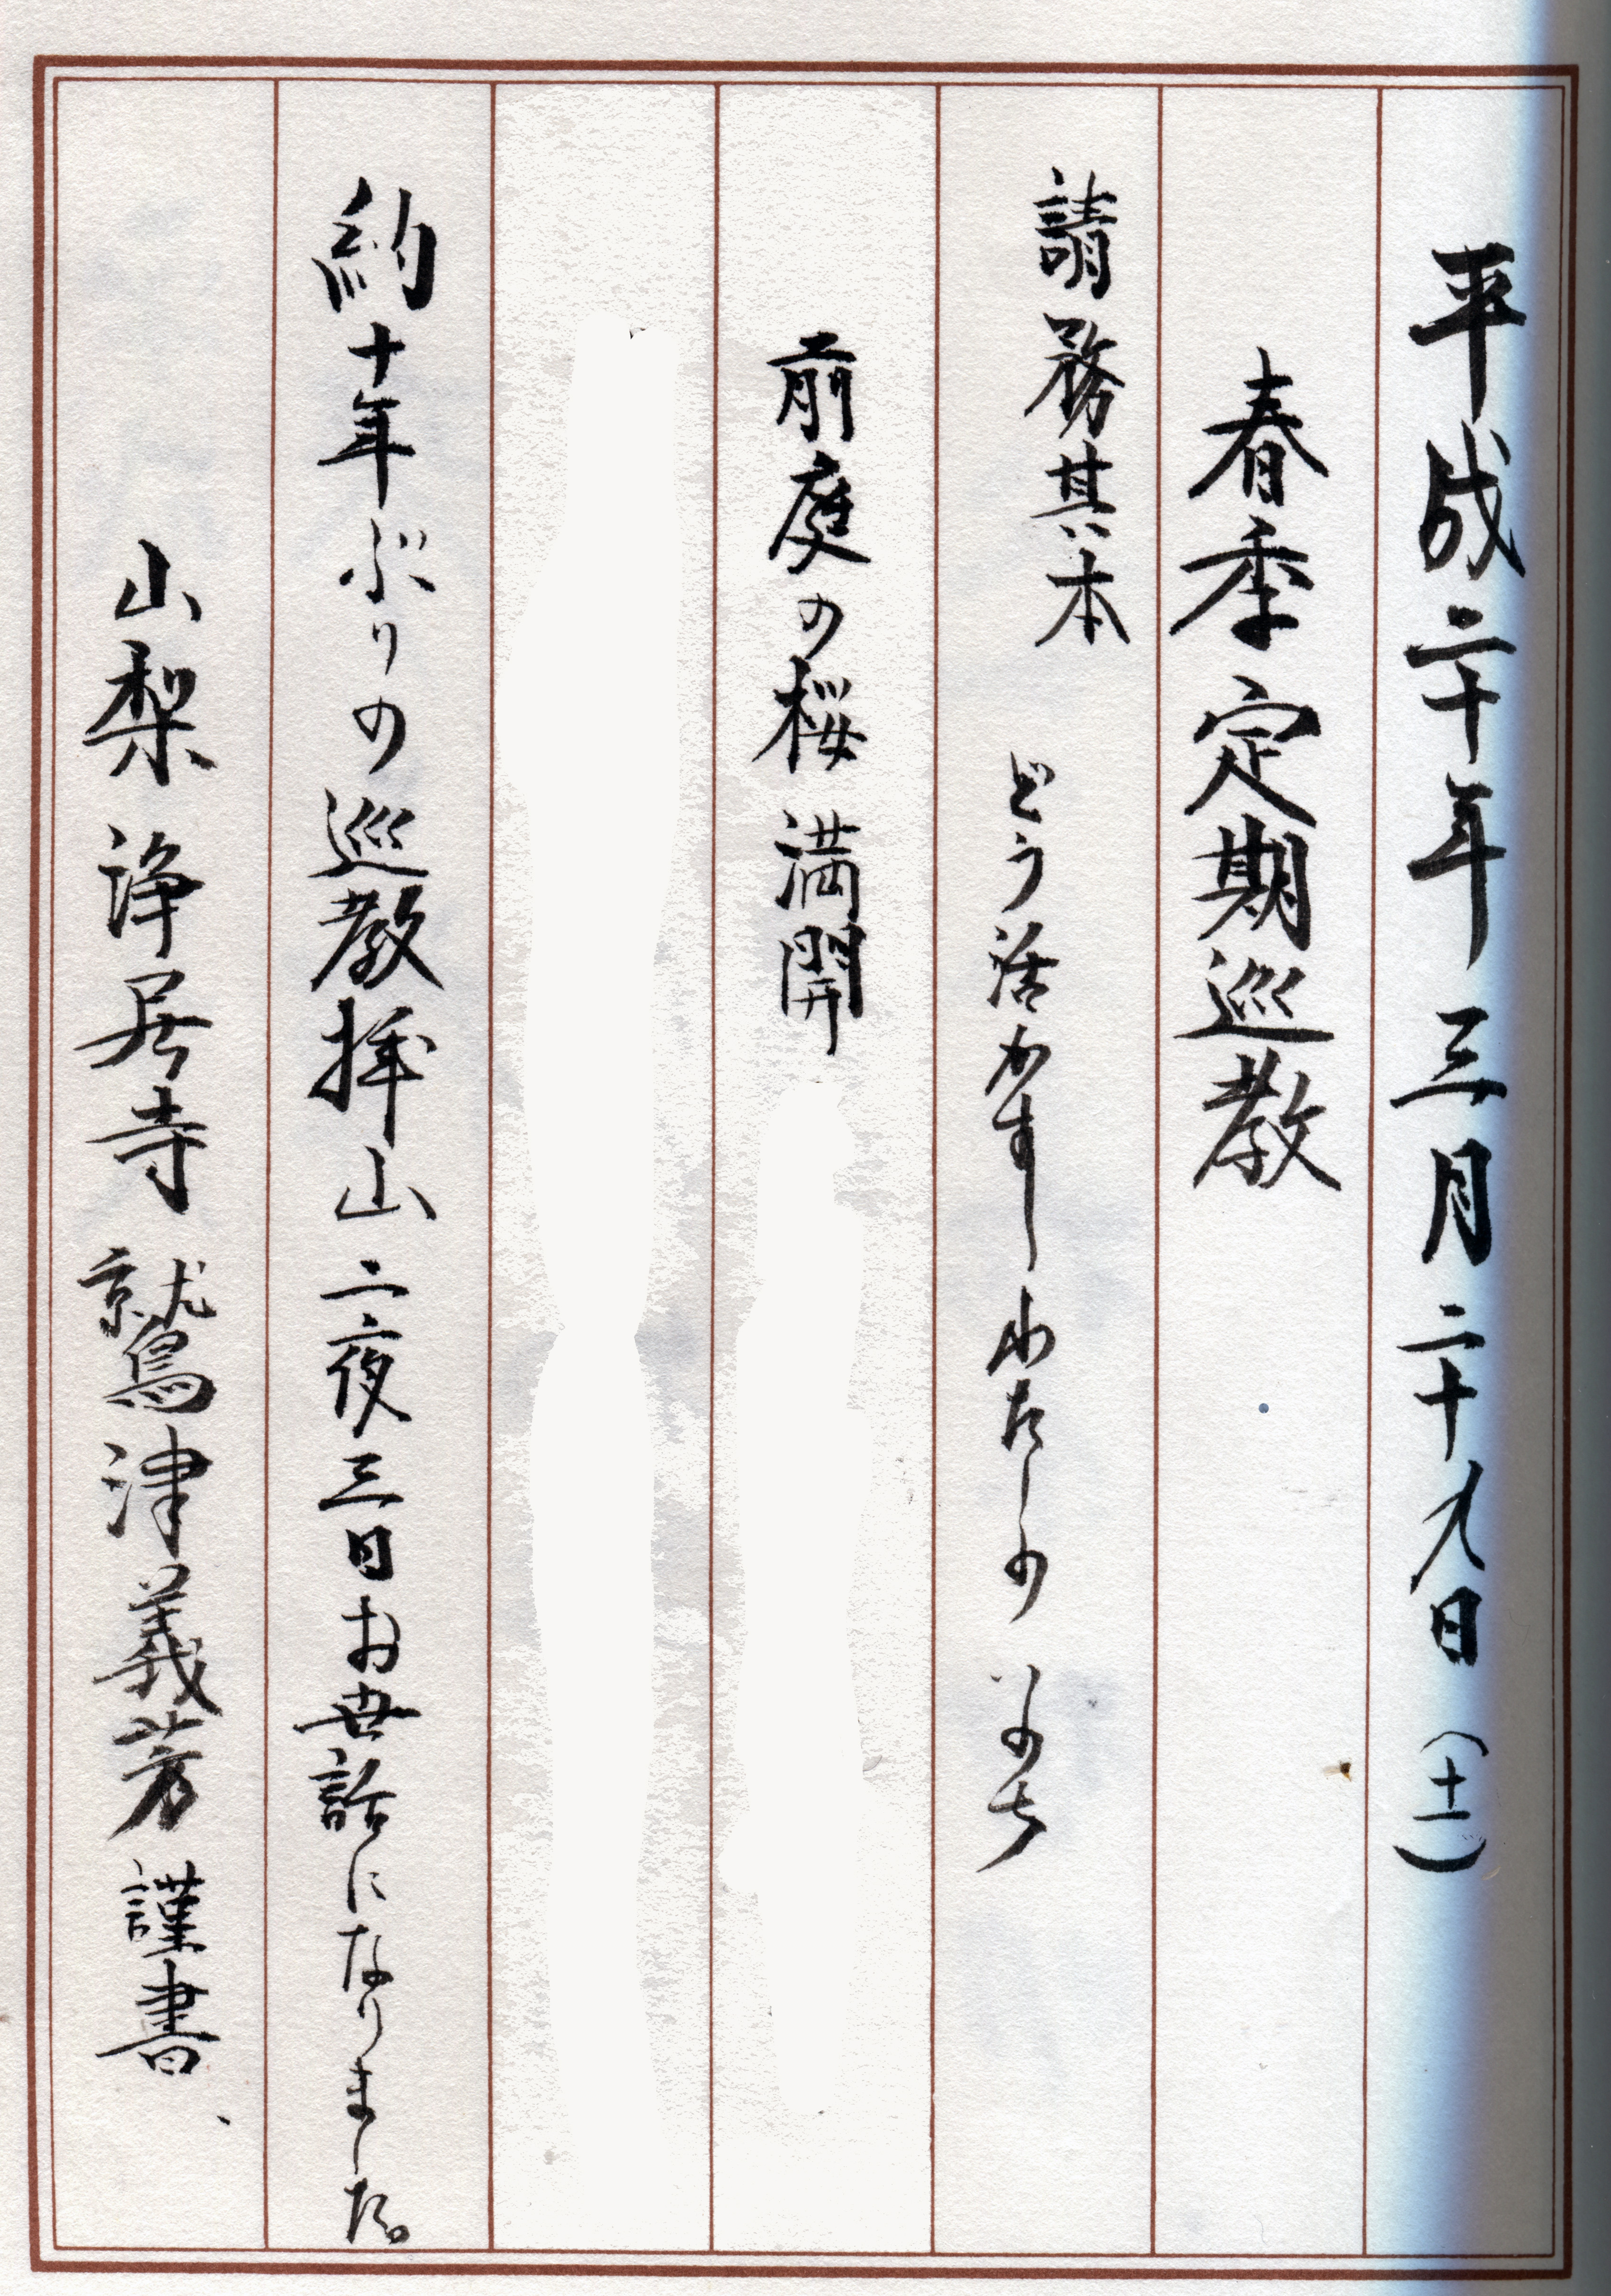 平成二十年三月二十九日（土）
春季定期巡教
請務其本　どう活かす わたしの いのち
前庭の桜 満開
約十年ぶりの巡教拝山 二夜三日お世話になりました。
山梨 浄居寺 鷲津義芳 謹書